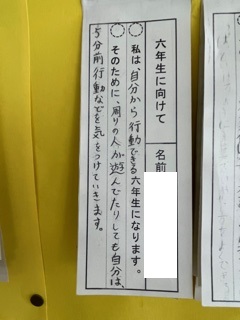 六年生に向けて
名前
私は、自分から行動できる六年生になります。
そのために、周りの人が遊んでたりしても自分は、
5分前行動などを気をつけていきます。